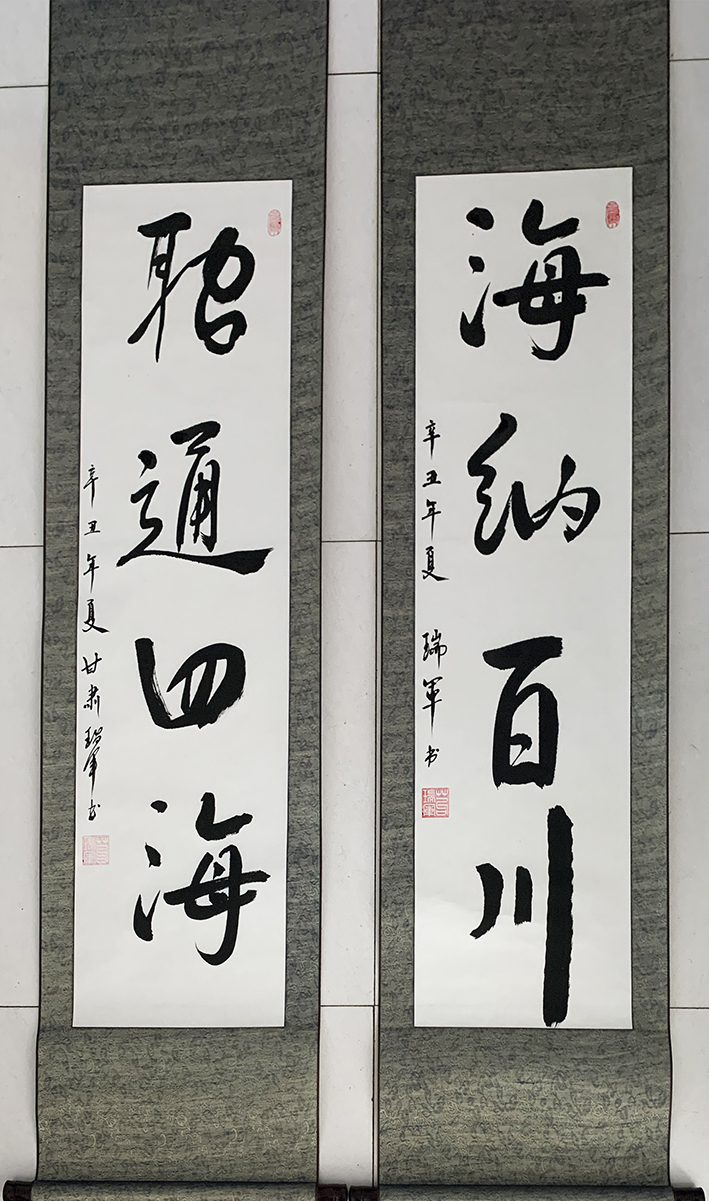 海纳百川
辛丑年夏 瑞军书
通四海
辛丑年夏甘肃瑞军书